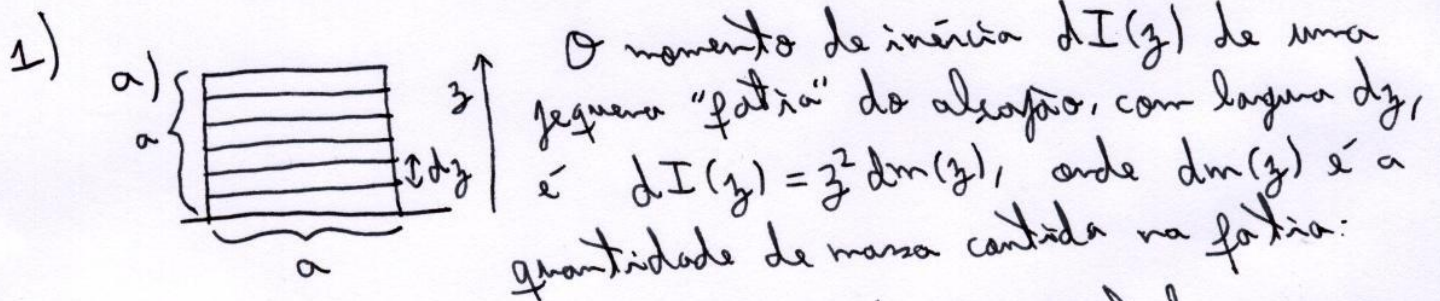 1) a) O momento de inércia dI(z) de uma
a z pequena "fatia" do alçapão, com largura dz,
dz é dI(z) = z² dm(z), onde dm(z) é a
a quantidade de massa contida na fatia: